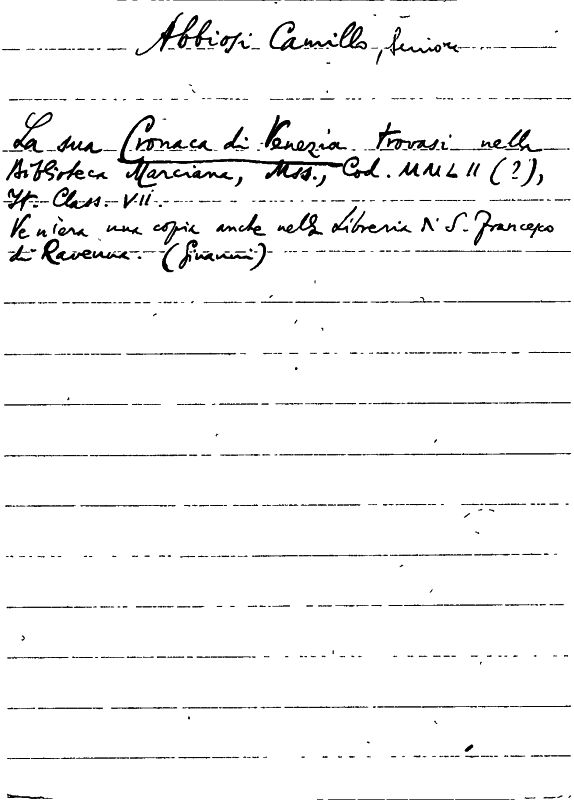 Abbiosi Camillo, Seniore
La sua Cronaca di Venezia trovasi nella
Biblioteca Marciana, Mss., Cod. MMLII (?),
It. Class. VII.
Ve n'era una copia anche nella Libreria di S. Francesco
di Ravenna. (Ginanni)